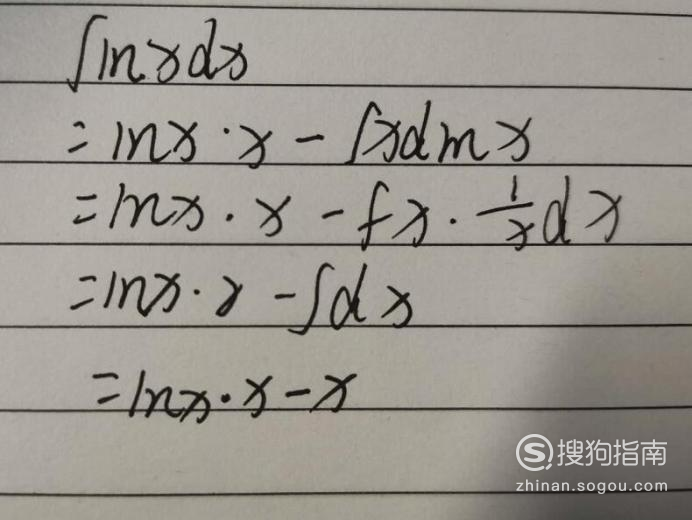 ∫lnxdx
=lnx·x-∫xdlnx
=lnx·x-∫x·1/x dx
=lnx·x-∫dx
=lnx·x-x
S搜狗指南
zhinan.sogou.com